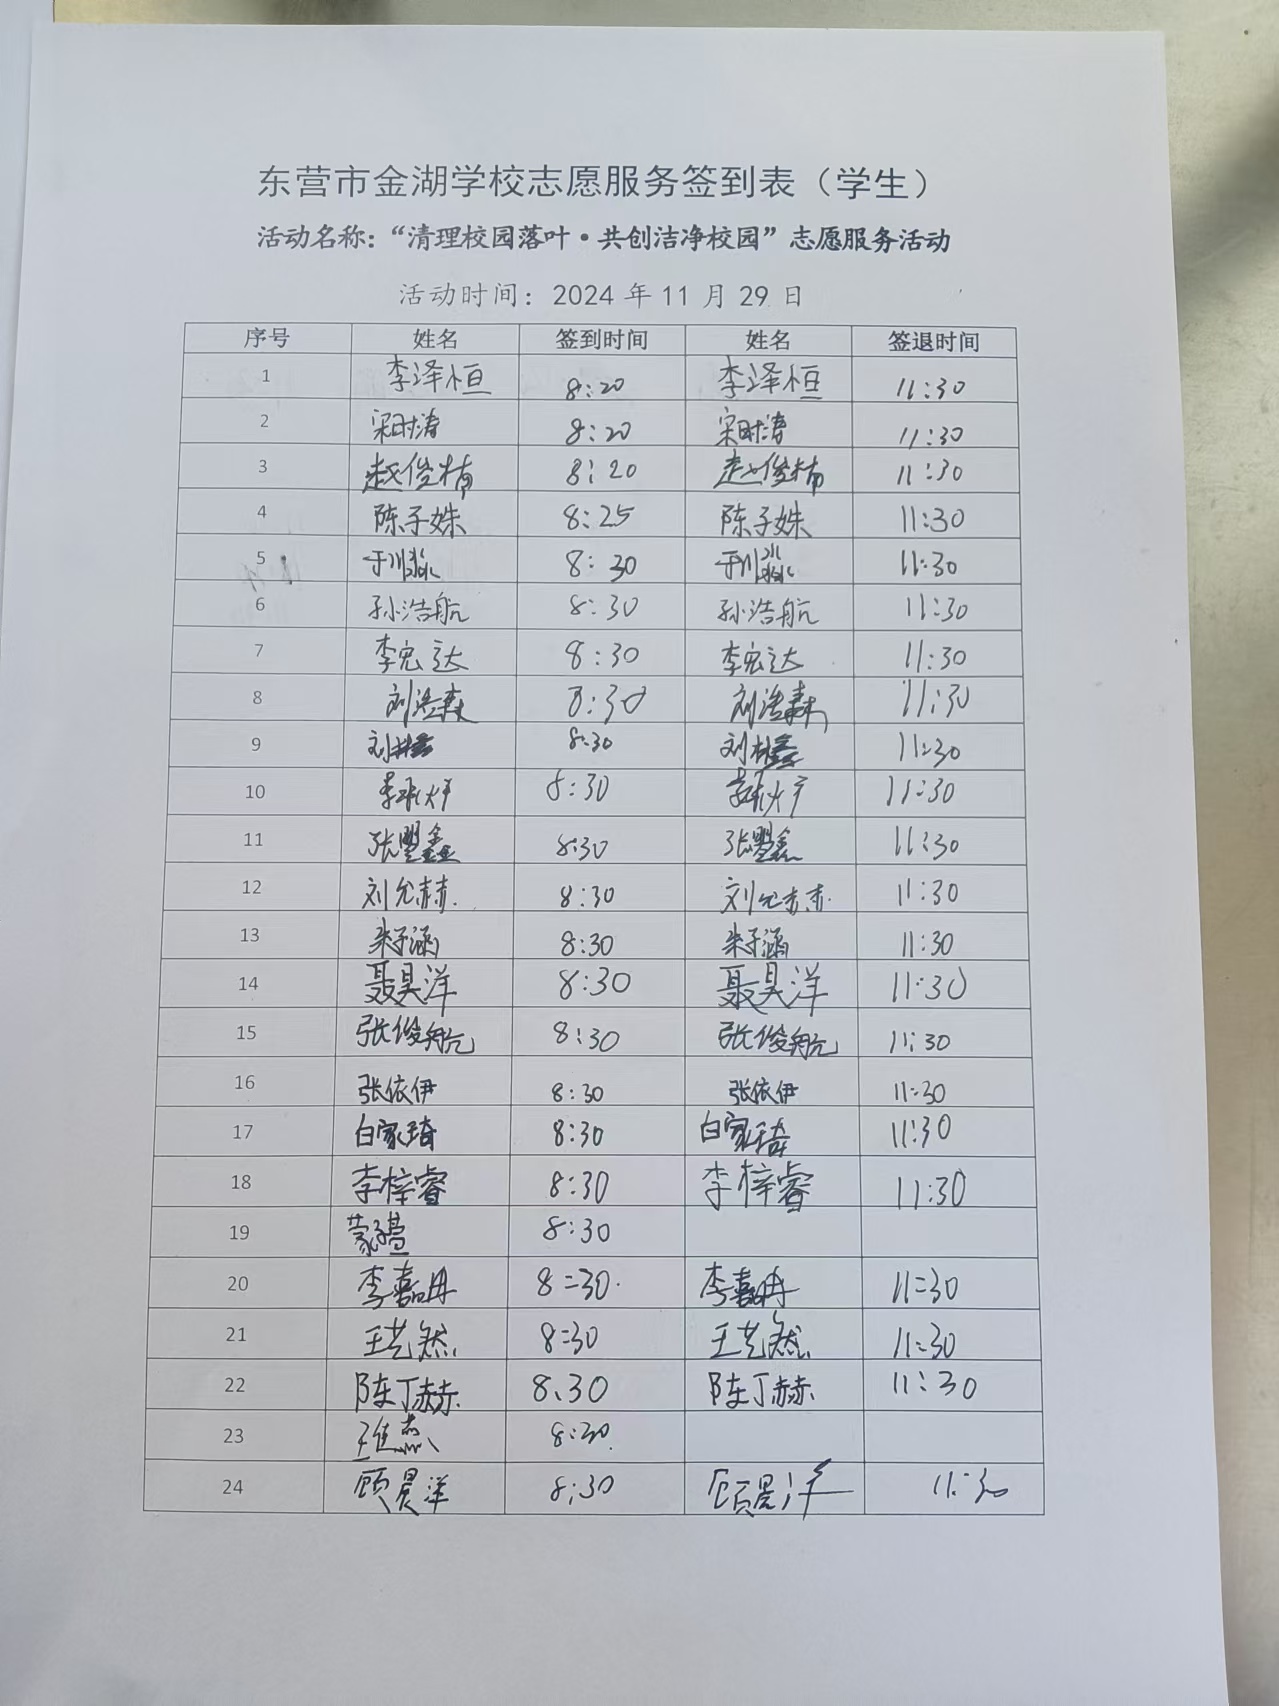 东营市金湖学校志愿服务签到表（学生）
活动名称：“清理校园落叶·共创洁净校园”志愿服务活动
活动时间：2024 年 11 月 29 日
序号 姓名 签到时间 姓名 签退时间
1 李泽恒 8:20 李泽恒 11:30
2 宋时涛 8:20 宋时涛 11:30
3 赵俊楠 8:20 赵俊楠 11:30
4 陈子姝 8:25 陈子姝 11:30
5 于川淼 8:30 于川淼 11:30
6 孙浩航 8:30 孙浩航 11:30
7 李宏达 8:30 李宏达 11:30
8 刘浩森 8:30 刘浩森 11:30
9 刘 8:30 刘 11:30
10 8:30 11:30
11 张曌鑫 8:30 张曌鑫 11:30
12 刘允赫 8:30 刘允赫 11:30
13 朱子涵 8:30 朱子涵 11:30
14 聂昊洋 8:30 聂昊洋 11:30
15 张俊航 8:30 张俊航 11:30
16 张依伊 8:30 张依伊 11:30
17 白家琦 8:30 白家琦 11:30
18 李梓睿 8:30 李梓睿 11:30
19 蒙子萱 8:30
20 李嘉冉 8:30 李嘉冉 11:30
21 王艺然 8:30 王艺然 11:30
22 陈丁赫 8:30 陈丁赫 11:30
23 8:30
24 顾晨洋 8:30 顾晨洋 11:30